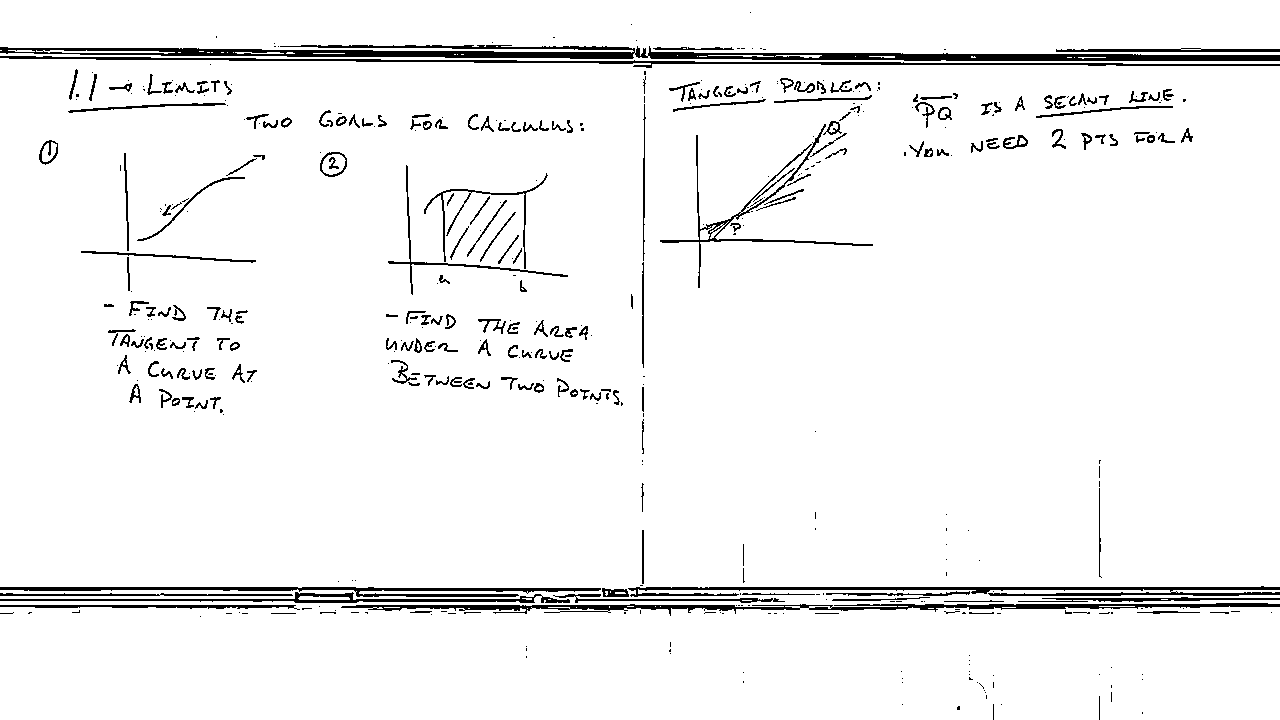 1.1 → LIMITS
TWO GOALS FOR CALCULUS:
①
②
a
b
- FIND THE
TANGENT TO
A CURVE AT
A POINT.
- FIND THE AREA
UNDER A CURVE
BETWEEN TWO POINTS.
TANGENT PROBLEM:
Q
P
PQ IS A SECANT LINE.
.YOU NEED 2 PTS FOR A